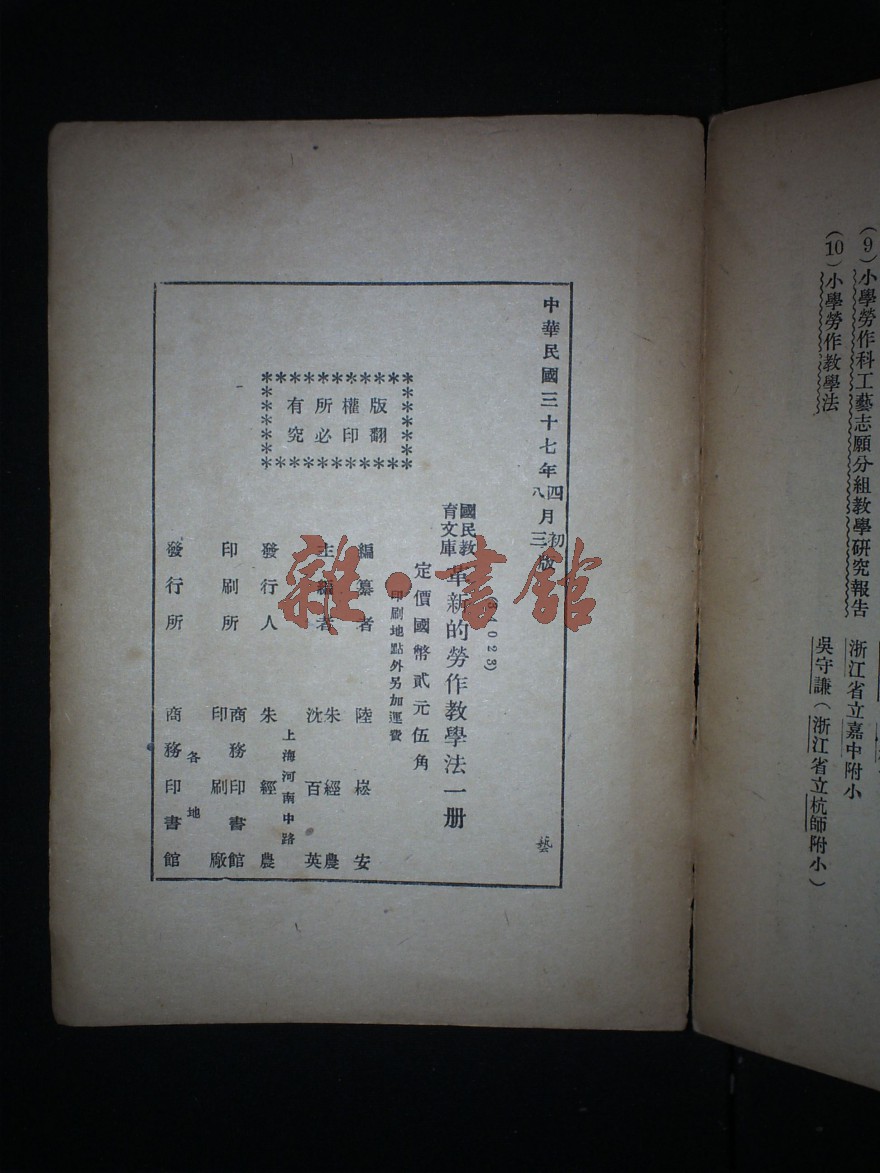 (9)小學勞作科工藝志願分組教學研究報告　浙江省立嘉中附小
(10)小學勞作教學法　吳守謙(浙江省立杭師附小)
中華民國三十七年四月初版
八　三
版權所有
翻印必究
國民教育文庫
革新的勞作教學法一册
定價國幣貳元伍角
印刷地點外另加運費
編纂者　陸崧安
主編者　朱經農
沈百英
上海河南中路
發行人　朱經農
印刷所　商務印書館
印刷廠
各地
發行所　商務印書館
藝
雜·書館